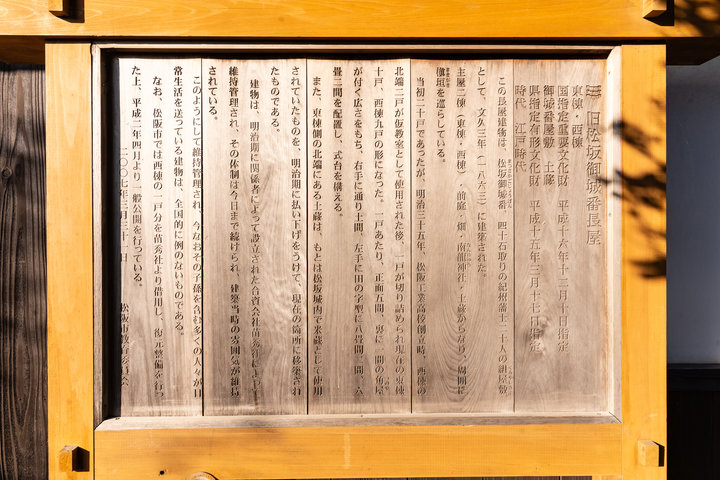 旧松坂御城番長屋
東棟・西棟
国指定重要文化財 平成十六年十二月十日指定
御城番屋敷 土蔵
県指定有形文化財 平成十五年三月十七日指定
時代 江戸時代
この長屋建物は、松坂御城番 四十石取りの紀州藩士二十人の組屋敷
として、文久三年(一八六三)に建築された。
主屋二棟(東棟・西棟)・前庭・畑・南龍神社・土蔵からなり、周囲に
槇垣を巡らしている。
当初二十戸であったが、明治三十五年、松阪工業高校創立時、西棟の
北端二戸が仮教室として使用された後、一戸が切り詰められ現在の東棟
十戸、西棟九戸の形になった。一戸あたり、正面五間、裏に一間の角屋
が付く広さをもち、右手に通り土間、左手に田の字型に八畳二間、六
畳二間を配置し、式台を構える。
また、東棟側の北端にある土蔵は、もとは松坂城内で米蔵として使用
されていたものを、明治期に払い下げをうけて、現在の箇所に移築され
たものである。
建物は、明治期に関係者によって設立された合資会社苗秀社によって
維持管理され、その体制は今日まで続けられ、建築当時の雰囲気が維持
されている。
このようにして維持管理され、今なおその子孫を含む多くの人々が日
常生活を送っている建物は、全国的に例のないものである。
なお、松阪市では西棟の一戸分を苗秀社より借用し、復元整備を行っ
た上、平成二年四月より一般公開を行っている。
二〇〇七年三月三十一日 松阪市教育委員会